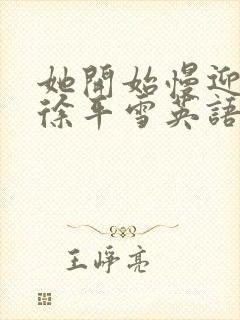 她開始慢迎
徐平雪英語
王崢亮